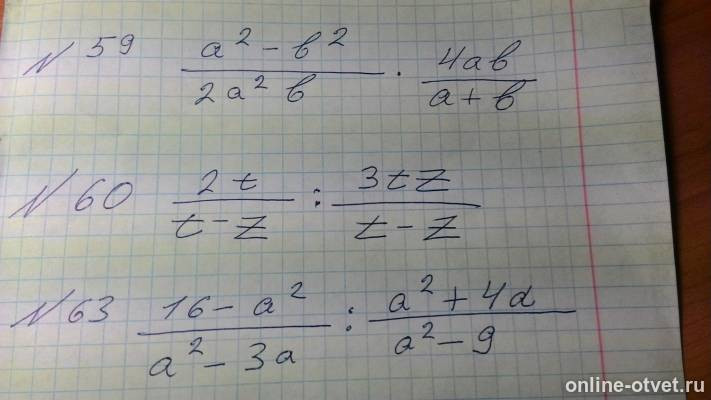 № 59 (a² - b²)/(2a² b) · (4ab)/(a + b)
№ 60 (2t)/(t - z) : (3tz)/(t - z)
№ 63 (16 - a²)/(a² - 3a) : (a² + 4a)/(a² - 9)
online-otvet.ru